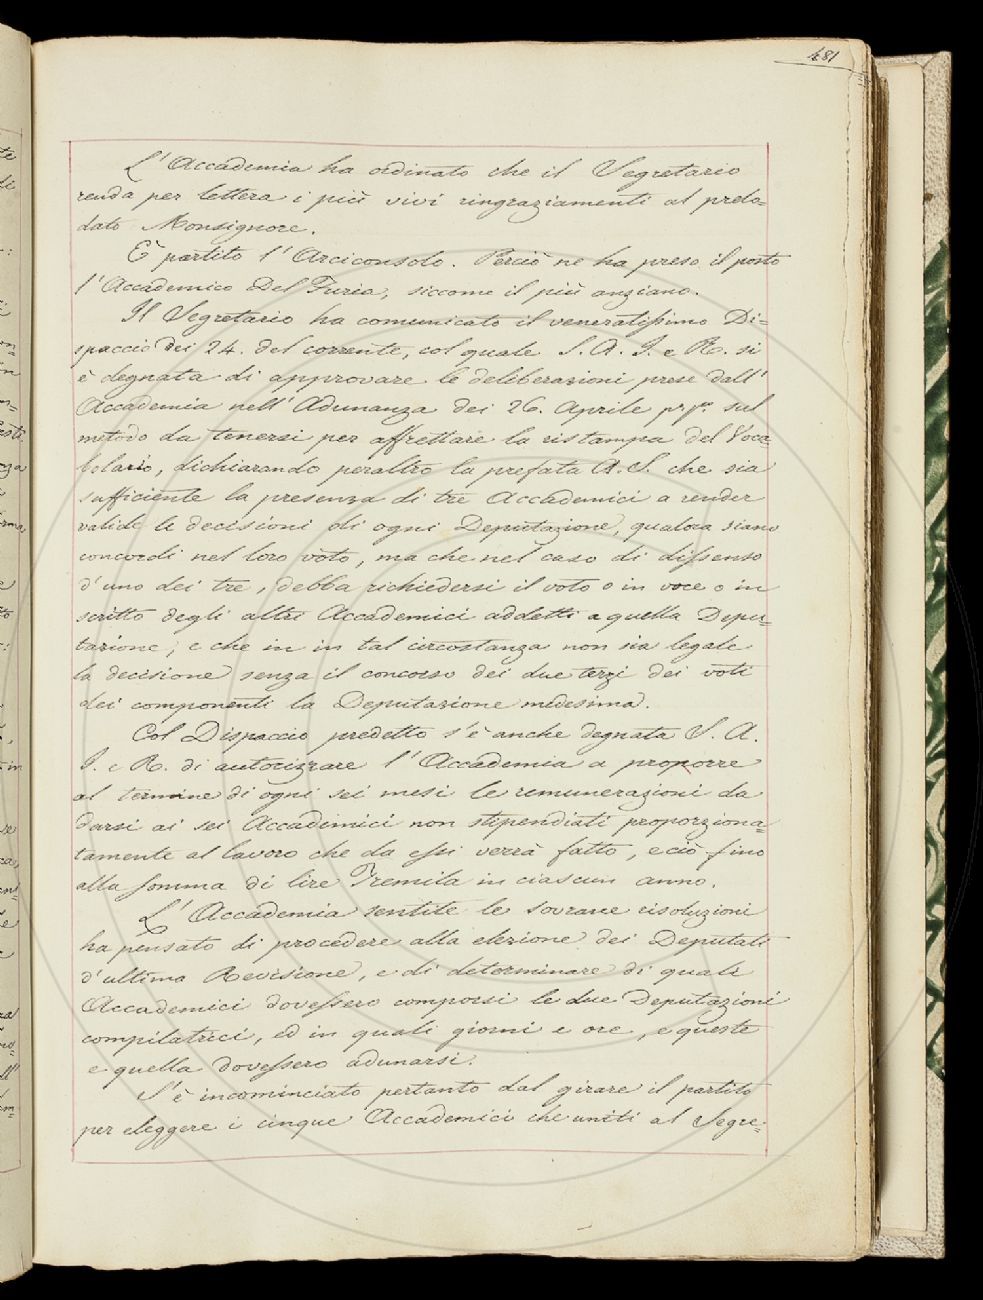 481
L'Accademia ha ordinato che il Segretario
renda per lettera i più vivi ringraziamenti al prelo=
dato Monsignore.
È partito l'Arciconsolo. Perciò ne ha preso il posto
l'Accademico Del Furia, siccome il più anziano.
Il Segretario ha comunicato il veneratissimo Di=
spaccio dei 24. del corrente, col quale S. A. I. e R. si
è degnata di approvare le deliberazioni prese dall'
Accademia nell'Adunanza dei 26. Aprile pº pº sul
metodo da tenersi per affrettare la ristampa del Voca
bolario, dichiarando peraltro la prefata A. S. che sia
sufficiente la presenza di tre Accademici a render
valide le decisioni di ogni Deputazione, qualora siano
concordi nel loro voto, ma che nel caso di dissenso
d'uno dei tre, debba richiedersi il voto o in voce o in
scritto degli altri Accademici addetti a quella Depu=
tazione; e che in in tal circostanza non sia legale
la decisione senza il concorso dei due terzi dei voti
dei componenti la Deputazione medesima.
Col Dispaccio predetto s'è anche degnata S. A.
I. e R. di autorizzare l'Accademia a proporre
al termine di ogni sei mesi le remunerazioni da
darsi ai sei Accademici non stipendiati proporziona=
tamente al lavoro che da essi verrà fatto, e ciò fino
alla somma di lire Tremila in ciascun anno.
L'Accademia sentite le sovrane risoluzioni
ha pensato di procedere alla elezione dei Deputati
d'ultima Revisione, e di determinare di quali
Accademici dovessero comporsi le due Deputazioni
compilatrici, ed in quali giorni e ore, e queste
e quella dovessero adunarsi.
S'è incominciato pertanto dal girare il partito
per eleggere i cinque Accademici che uniti al Segre=